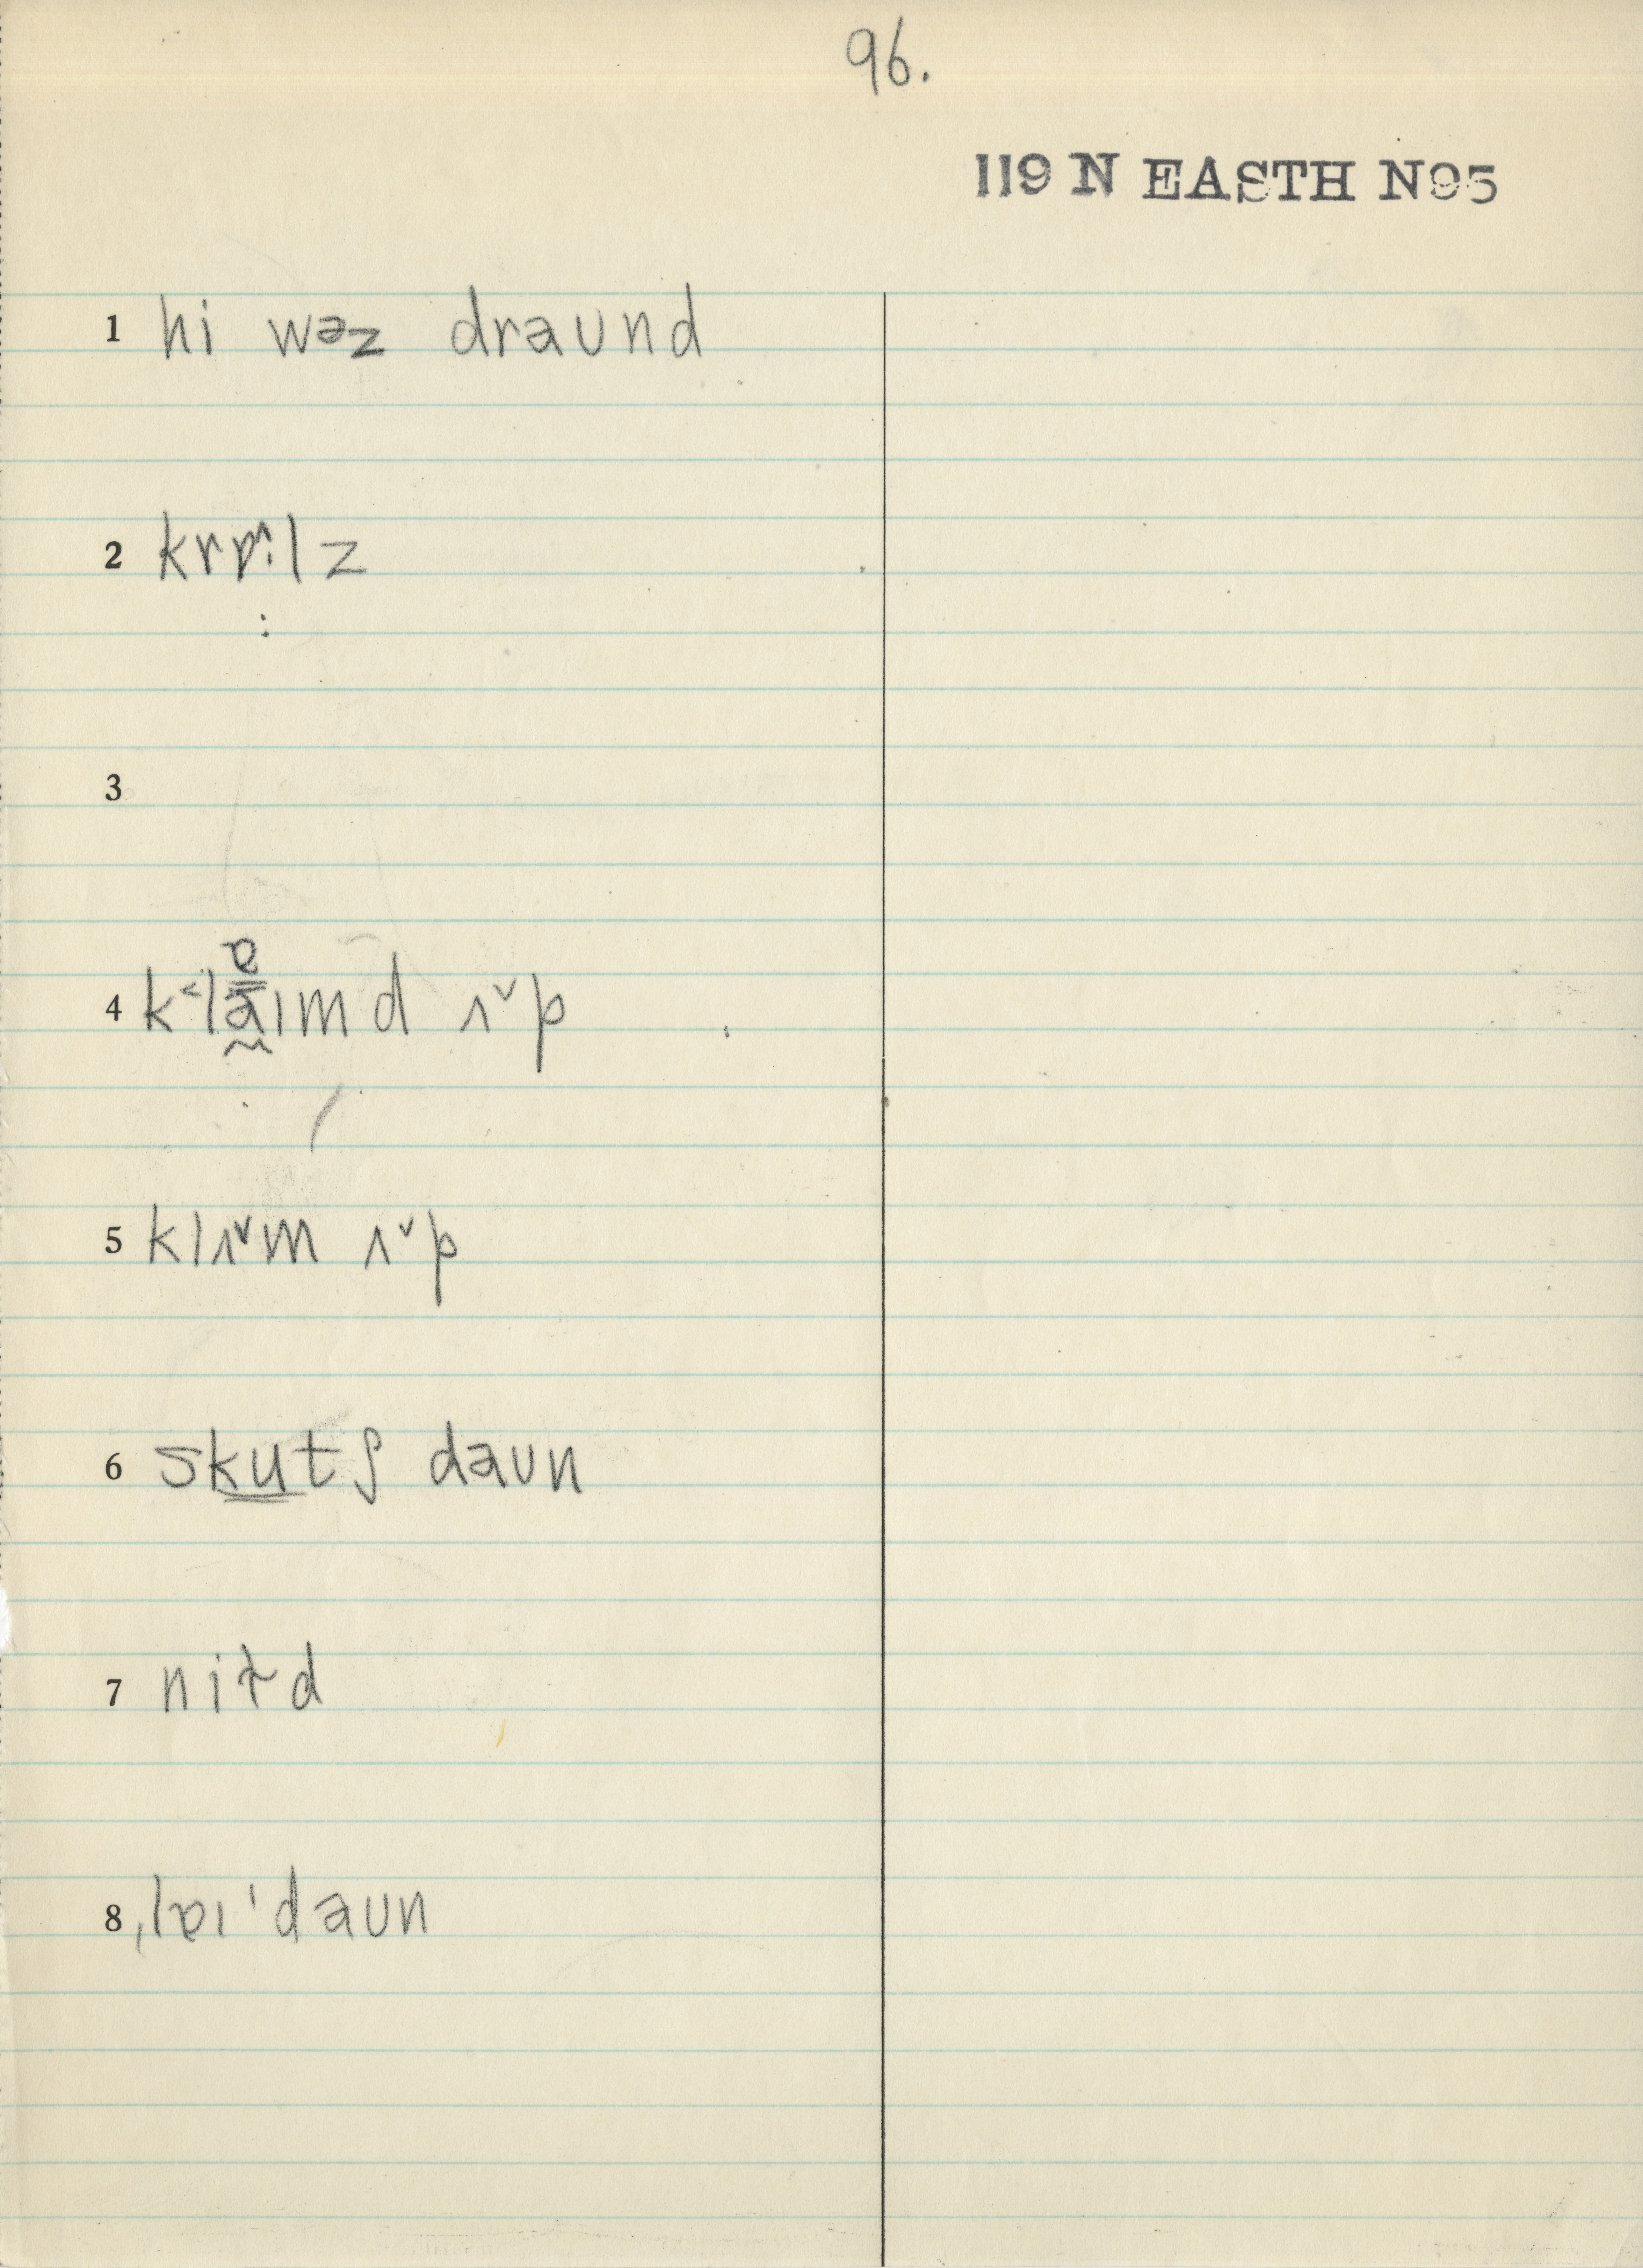 96.
119 N EASTH N95
1 hi wəz draund
2 krɒ^:lz
:
3
4 k˂laımd ʌ˅p
ɐ
5 klʌ˅m ʌ˅p
6 skutʃ daun
7 nit̬d
8 ˌlɒı ˈdaun